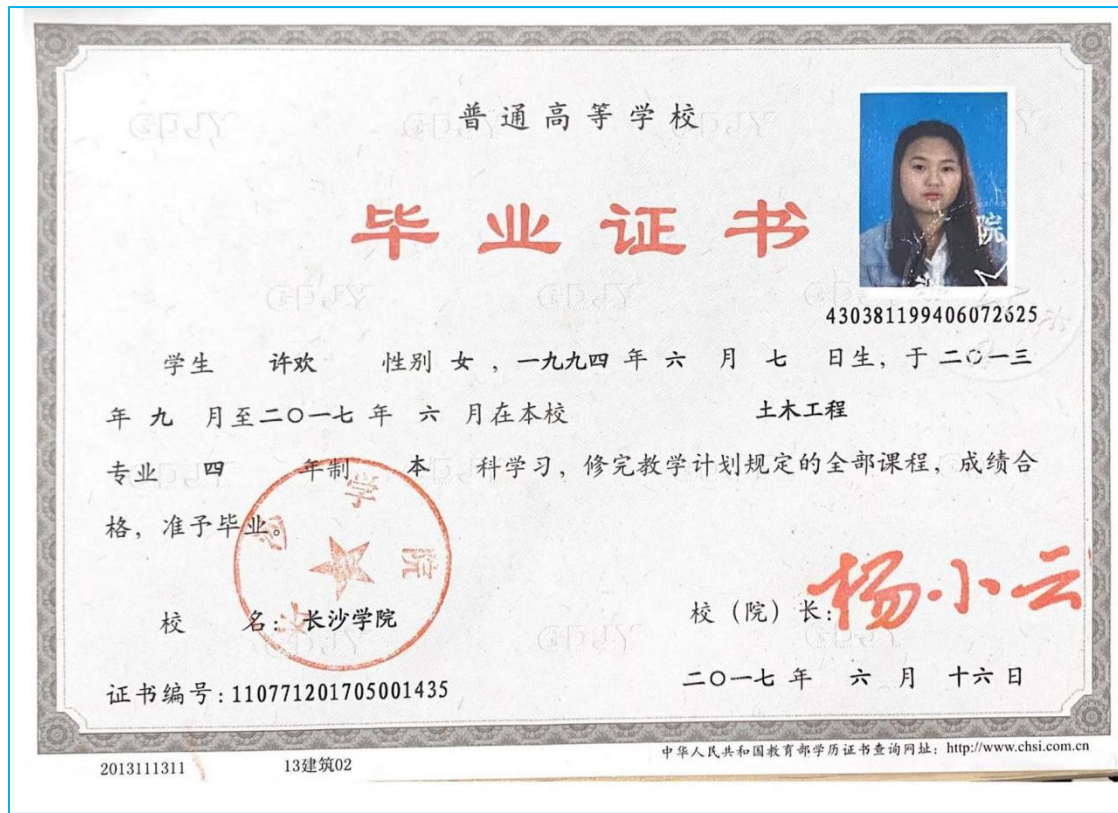 普通高等学校
毕业证书
院
430381199406072625
学生 许欢 性别 女 ，一九九四 年 六 月 七 日生，于 二〇一三
年 九 月至二〇一七 年 六 月在本校 土木工程
专业 四 年制 本 科学习，修完教学计划规定的全部课程，成绩合
格，准予毕业。
长沙学院
校 名：长沙学院
校（院）长：杨小云
证书编号：110771201705001435
二〇一七 年 六 月 十六 日
中华人民共和国教育部学历证书查询网址：http://www.chsi.com.cn
2013111311 13建筑02